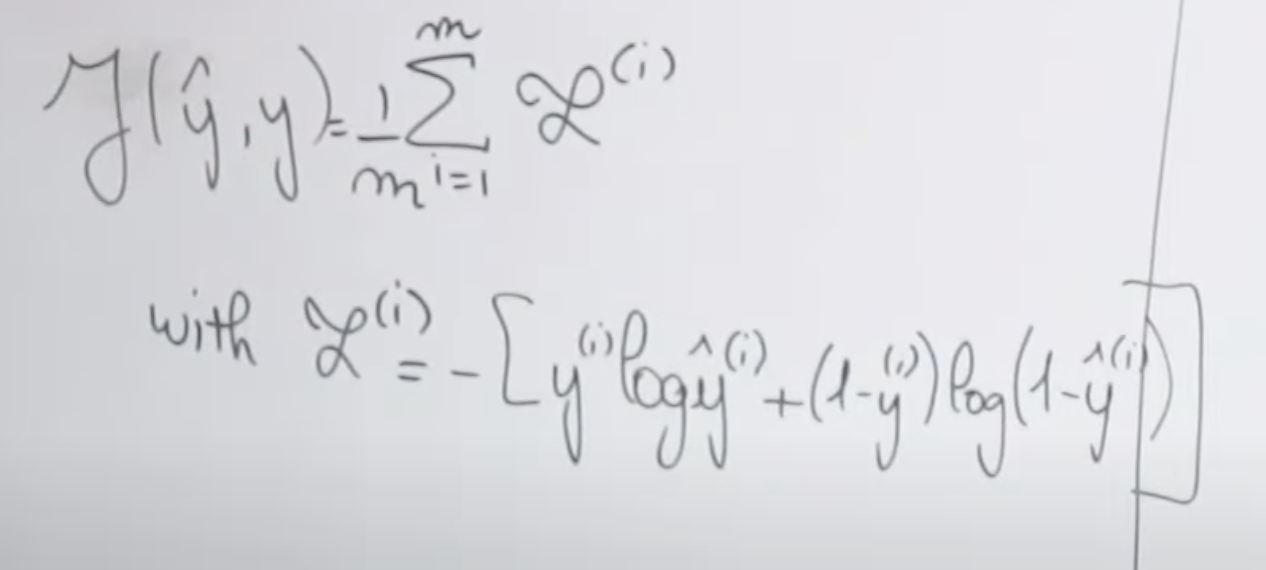 J(ŷ, y) = 1/m ∑_{i=1}^{m} ℒ^{(i)}
with ℒ^{(i)} = -[y^{(i)} log ŷ^{(i)} + (1-y^{(i)}) log(1-ŷ^{(i)})]